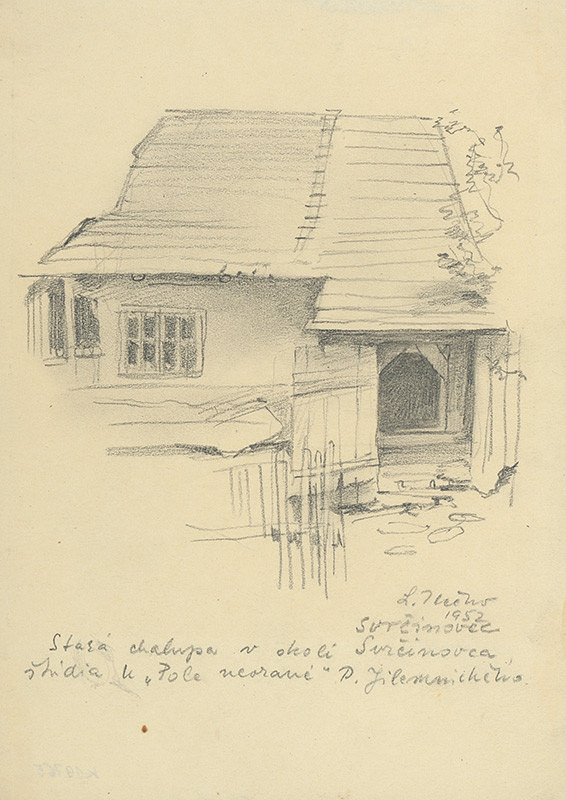 L. Ilečko
1952
Svrčinovec
Stará chalupa v okolí Svrčinovca
štúdia k „Pole neorané“ P. Jilemnického.